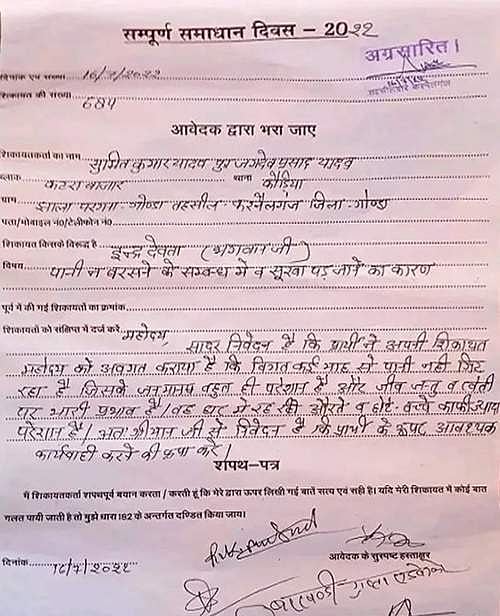 सम्पूर्ण समाधान दिवस – 2022
अग्रसारित।
दिनांक एवं संख्या 16/7/2022
शिकायत की संख्या 684
आवेदक द्वारा भरा जाए
शिकायतकर्ता का नाम सुमित कुमार यादव पुत्र जगदेव प्रसाद यादव
ब्लाक कटरा बाजार थाना कौड़िया
ग्राम झाला परगना गोण्डा तहसील करनैलगंज जिला गोण्डा
पता/मोबाइल नं0/टेलीफोन नं0
शिकायत किसके विरूद्ध है इन्द्र देवता (भगवान जी)
विषय पानी न बरसने के सम्बन्ध में व सूखा पड़ जाने का कारण
पूर्व में की गई शिकायतों का क्रमांक
शिकायतों को संक्षिप्त में दर्ज करें महोदय,
सादर निवेदन है कि प्रार्थी ने अपनी शिकायत
महोदय को अवगत कराया है कि विगत कई माह से पानी नही गिर
रहा है जिससे जनमानस बहुत ही परेशान है और जीव जन्तु व खेती
पर भारी प्रभाव है। वह घर में रह रही औरते व छोटे बच्चे काफी ज्यादा
परेशान है। अतः श्रीमान जी से निवेदन है कि प्रार्थी के ऊपर आवश्यक
कार्यवाही करने की कृपा करें।
शपथ-पत्र
में शिकायतकर्ता शपथपूर्व बयान करता / करती हूं कि मेरे द्वारा ऊपर लिखी गई बातें सत्य एवं सही है। यदि मेरी शिकायत में कोई बात
गलत पायी जाती है तो मुझे धारा 182 के अन्तर्गत दण्डित किया जाय।
दिनांक 16/7/2022
आवेदक के सुस्पष्ट हस्ताक्षर